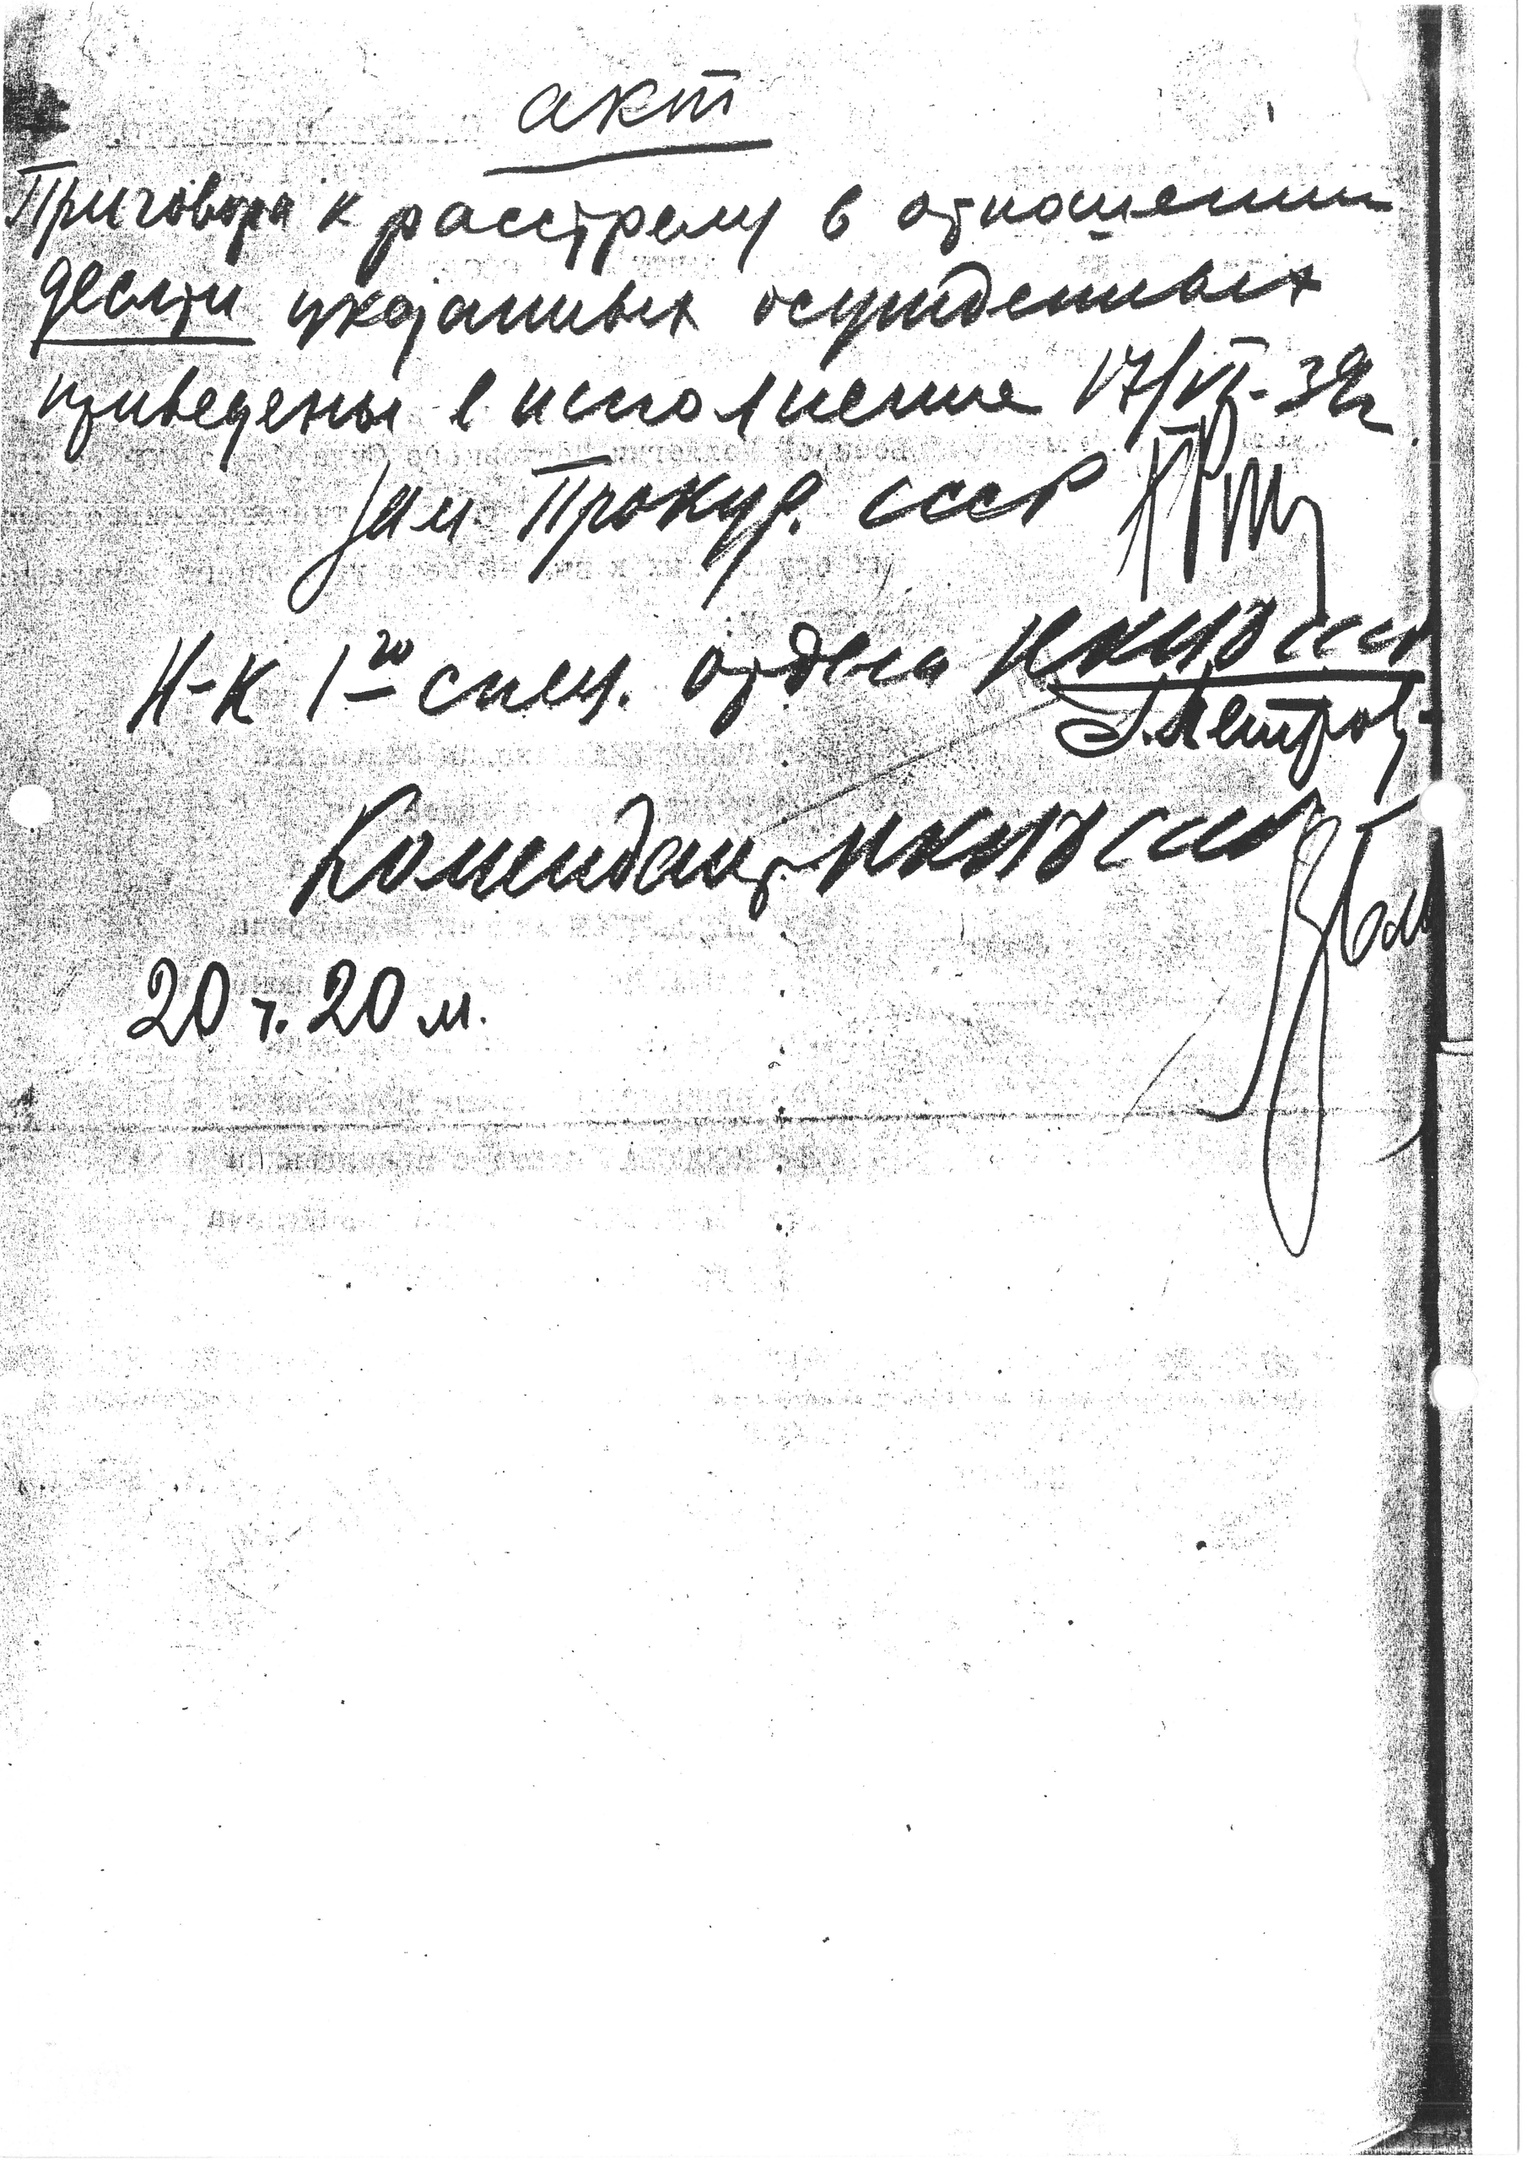 акт
Приговора к расстрелу в отношении
десяти указанных осужденных
приведены в исполнение 17/VI-39г.
Зам. Прокур. СССР
Н-к 1го спец. отдела НКВД СССР
Петров
Комендант НКВД СССР
20 ч. 20 м.